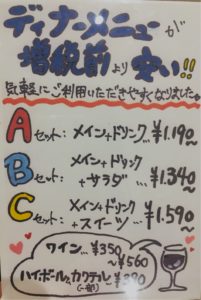 ディナーメニューが
増税前より安い!!
気軽にご利用いただきやすくなりました。
Aセット: メイン+ドリンク… ¥1.190~
Bセット: メイン+ドリンク
+サラダ … ¥1.340~
Cセット: メイン+ドリンク
+スイーツ … ¥1.590~
ワイン… ¥350
~¥560
ハイボール、カクテル ¥390
(一部)